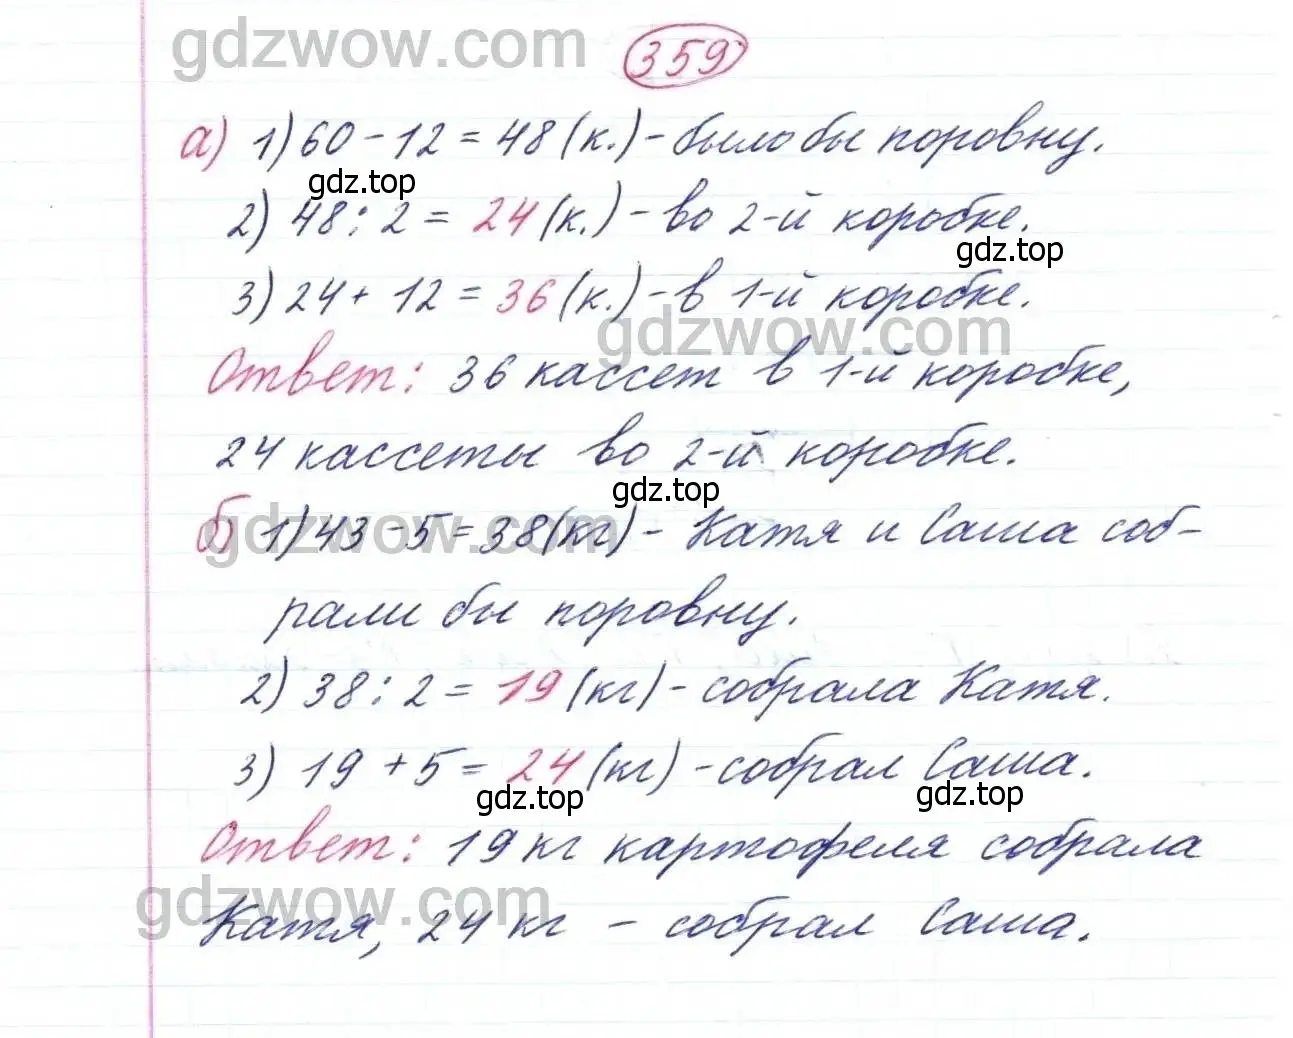 gdzwow.com
359
а) 1) 60 - 12 = 48 (к.) - было бы поровну.
gdz.top
2) 48 : 2 = 24 (к.) - во 2-й коробке.
gdz.top
3) 24 + 12 = 36 (к.) - в 1-й коробке.
gdzwow.com
Ответ: 36 кассет в 1-й коробке,
24 кассеты во 2-й коробке.
gdz.top
gdzwow.com
б) 1) 43 - 5 = 38 (кг) - Катя и Саша соб-
рали бы поровну.
2) 38 : 2 = 19 (кг) - собрала Катя.
3) 19 + 5 = 24 (кг) - собрал Саша.
gdz.top gdz.top
Ответ: 19 кг картофеля собрала
gdzwow.com
Катя, 24 кг - собрал Саша.